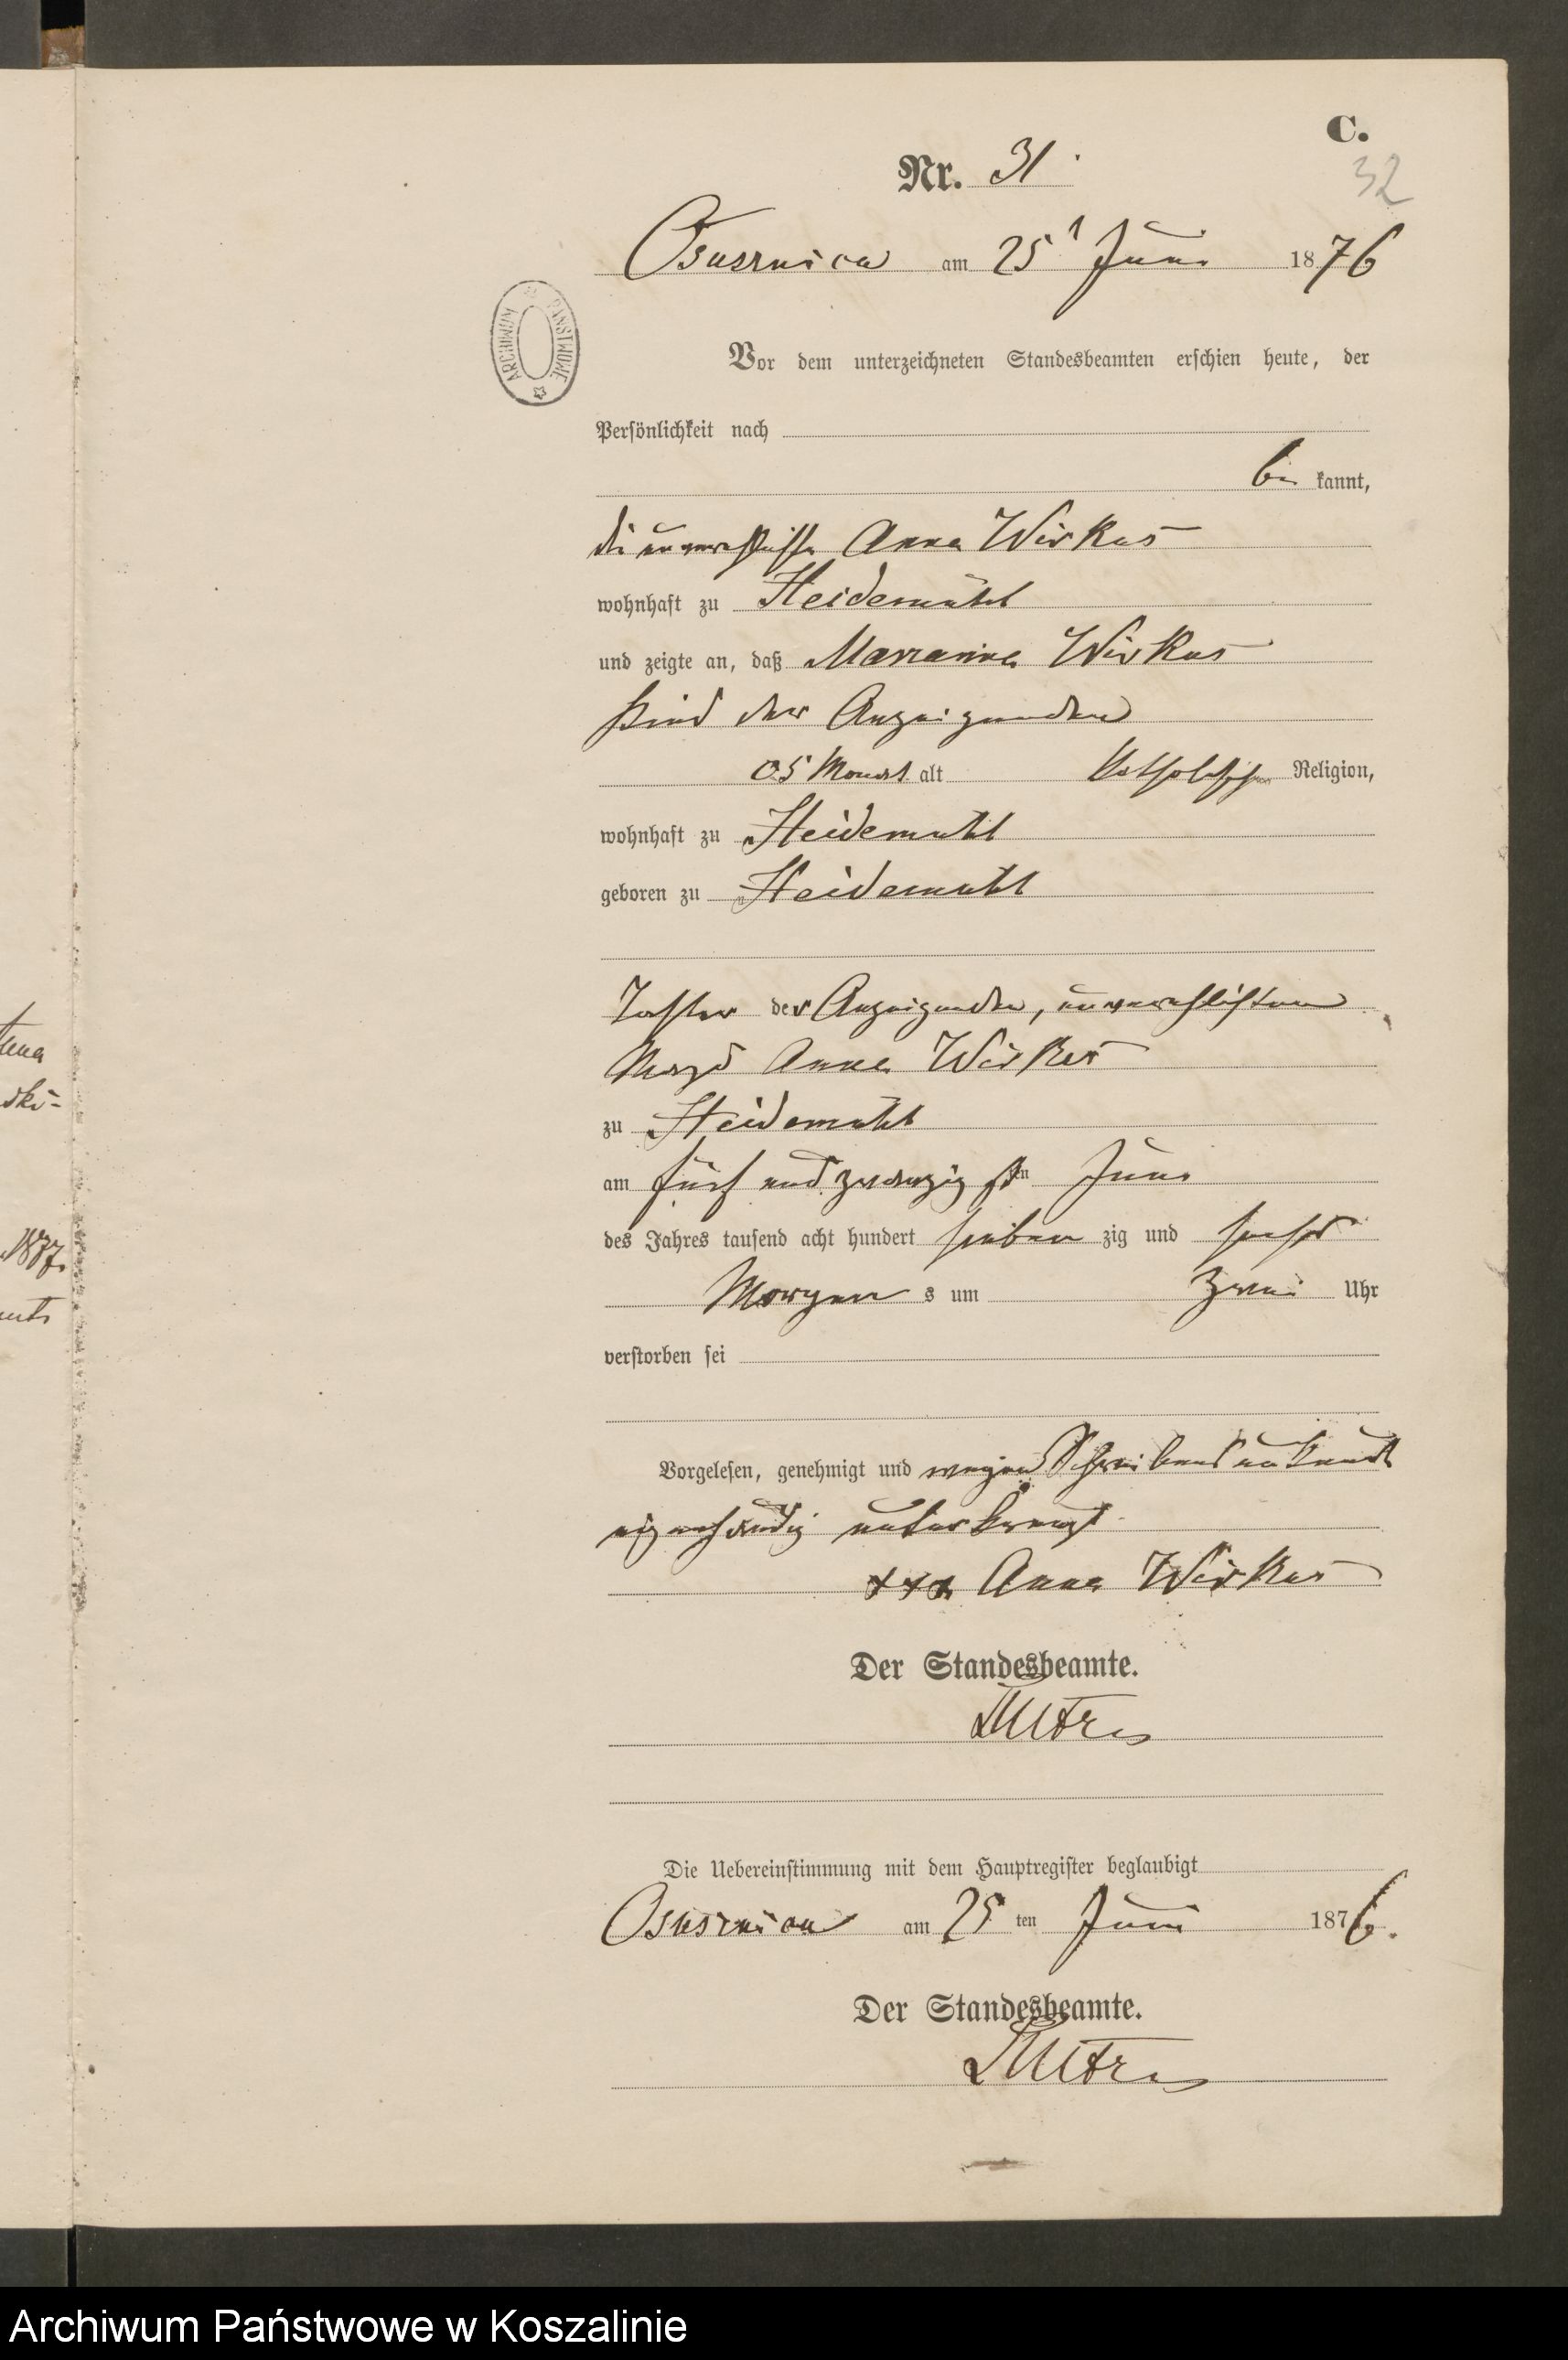 C.
Nr. 31.
32
Ossusznica am 25t Juni 1876
ARCHIWUM PAŃSTWOWE
Vor dem unterzeichneten Standesbeamten erschien heute, der
Persönlichkeit nach
be kannt,
die unverehlichte Anna Wirkus
wohnhaft zu Heidemühl
und zeigte an, daß Marianna Wirkus
Kind der Anzeigenden
05 Monat alt katholischer Religion,
wohnhaft zu Heidemühl
geboren zu Heidemühl
Tochter der Anzeigenden, unverehlichten
Magd Anna Wirkus
zu Heidemühl
am fünf und zwanzigsten Juni
des Jahres tausend acht hundert sieben zig und sechs
Morgen s um zwei Uhr
verstorben sei
Vorgelesen, genehmigt und wegen Schreibensunkunde
eigenhändig unterkreuzt
xxx Anna Wirkus
Der Standesbeamte.
Die Uebereinstimmung mit dem Hauptregister beglaubigt
am 25 ten Juni 1876.
Der Standesbeamte.
tena
ski-
1877.
amts
Archiwum Państwowe w Koszalinie